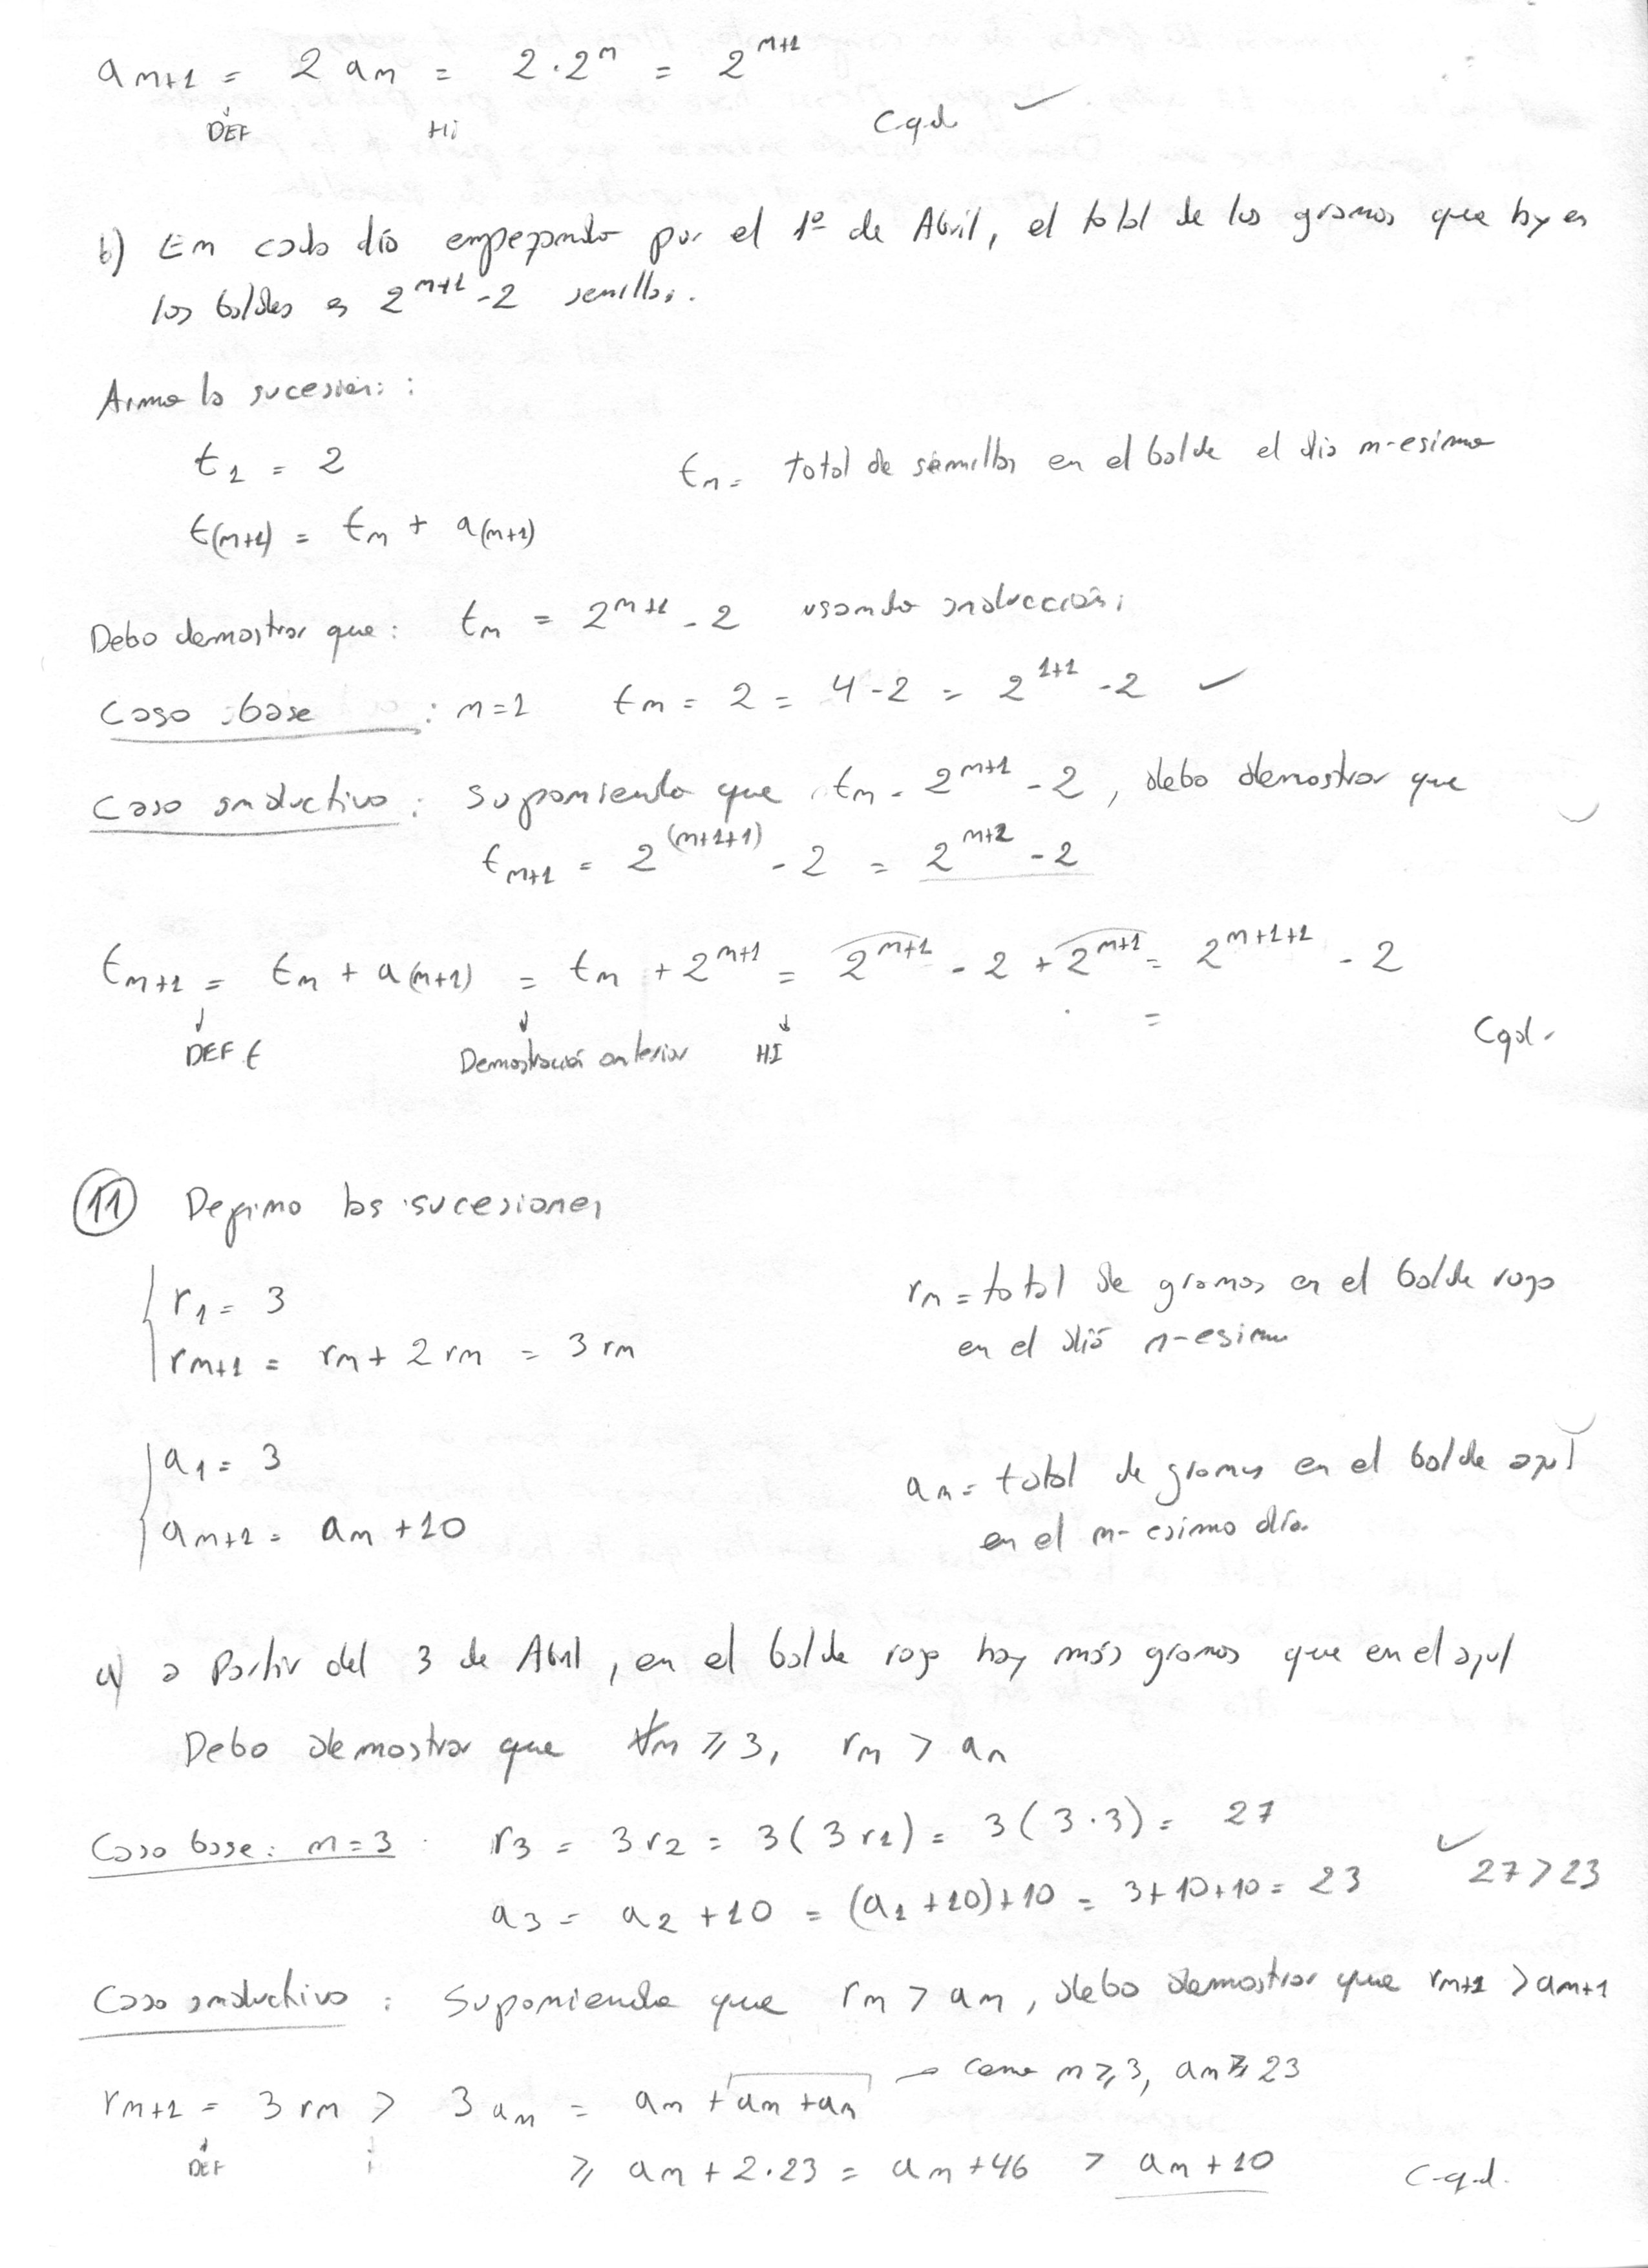 a_{n+1} = 2 a_n = 2 · 2^n = 2^{n+1}
DEF HI Cqd. ✓
b) En cada día empezando por el 1º de Abril, el total de los granos que hay en
los baldes es 2^{n+1} - 2 semillas.
Armo la sucesión:
t_1 = 2
t_n = total de semillas en el balde el día n-esimo
t_{(n+1)} = t_n + a_{(n+1)}
Debo demostrar que: t_n = 2^{n+1} - 2 usando inducción:
Caso base : n=1 t_n = 2 = 4 - 2 = 2^{1+1} - 2 ✓
Caso inductivo : Suponiendo que t_n = 2^{n+1} - 2, debo demostrar que
t_{n+1} = 2^{(n+1+1)} - 2 = 2^{n+2} - 2
t_{n+1} = t_n + a_{(n+1)} = t_n + 2^{n+1} = 2^{n+1} - 2 + 2^{n+1} = 2^{n+1+1} - 2
=
DEF t Demostración anterior HI Cqd.
11 Defino las sucesiones
r_1 = 3
r_n = total de granos en el balde rojo
r_{n+1} = r_n + 2 r_n = 3 r_n
en el día n-esimo
a_1 = 3
a_n = total de granos en el balde azul
a_{n+1} = a_n + 10
en el n-esimo día
a) a Partir del 3 de Abril, en el balde rojo hay más granos que en el azul
Debo demostrar que ∀n ≥ 3, r_n > a_n
Caso base: n=3 r_3 = 3 r_2 = 3(3 r_1) = 3(3·3) = 27
✓ 27 > 23
a_3 = a_2 + 10 = (a_1 + 10) + 10 = 3+10+10 = 23
Caso inductivo : Suponiendo que r_n > a_n, debo demostrar que r_{n+1} > a_{n+1}
r_{n+1} = 3 r_n > 3 a_n = a_n + a_n + a_n → como n ≥ 3, a_n ≥ 23
DEF
≥ a_n + 2·23 = a_n + 46 > a_n + 10 C.q.d.